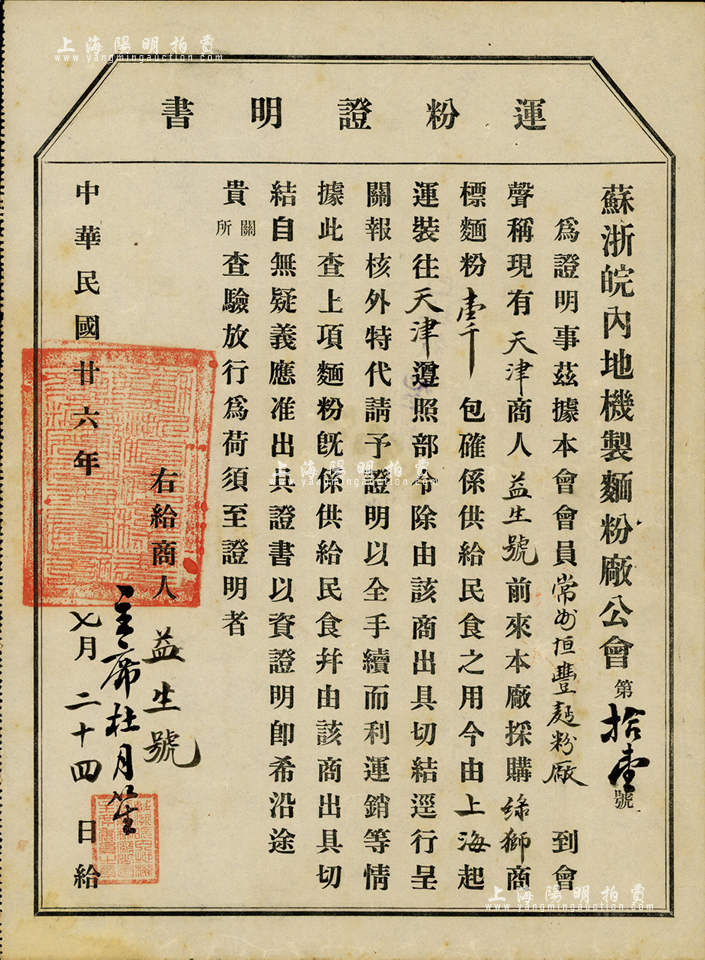 上海陽明拍賣
www.yangmingauction.com
運粉證明書
蘇浙皖內地機製麵粉廠公會第拾壹號
為證明事茲據本會會員常州恒豐麵粉廠到會
聲稱現有天津商人益生號前來本廠採購綠獅商
標麵粉壹千包確係供給民食之用今由上海起
運裝往天津遵照部令除由該商出具切結逕行呈
關報核外特代請予證明以全手續而利運銷等情
據此查上項麵粉旣係供給民食幷由該商出具切
結自無疑義應准出具證書以資證明卽希沿途
貴關所查驗放行為荷須至證明者
右給商人益生號
主席杜月笙
中華民國廿六年七月二十四日給
上海陽明拍賣
www.yangmingauction.com
上海陽明拍賣
www.yangmingauction.com